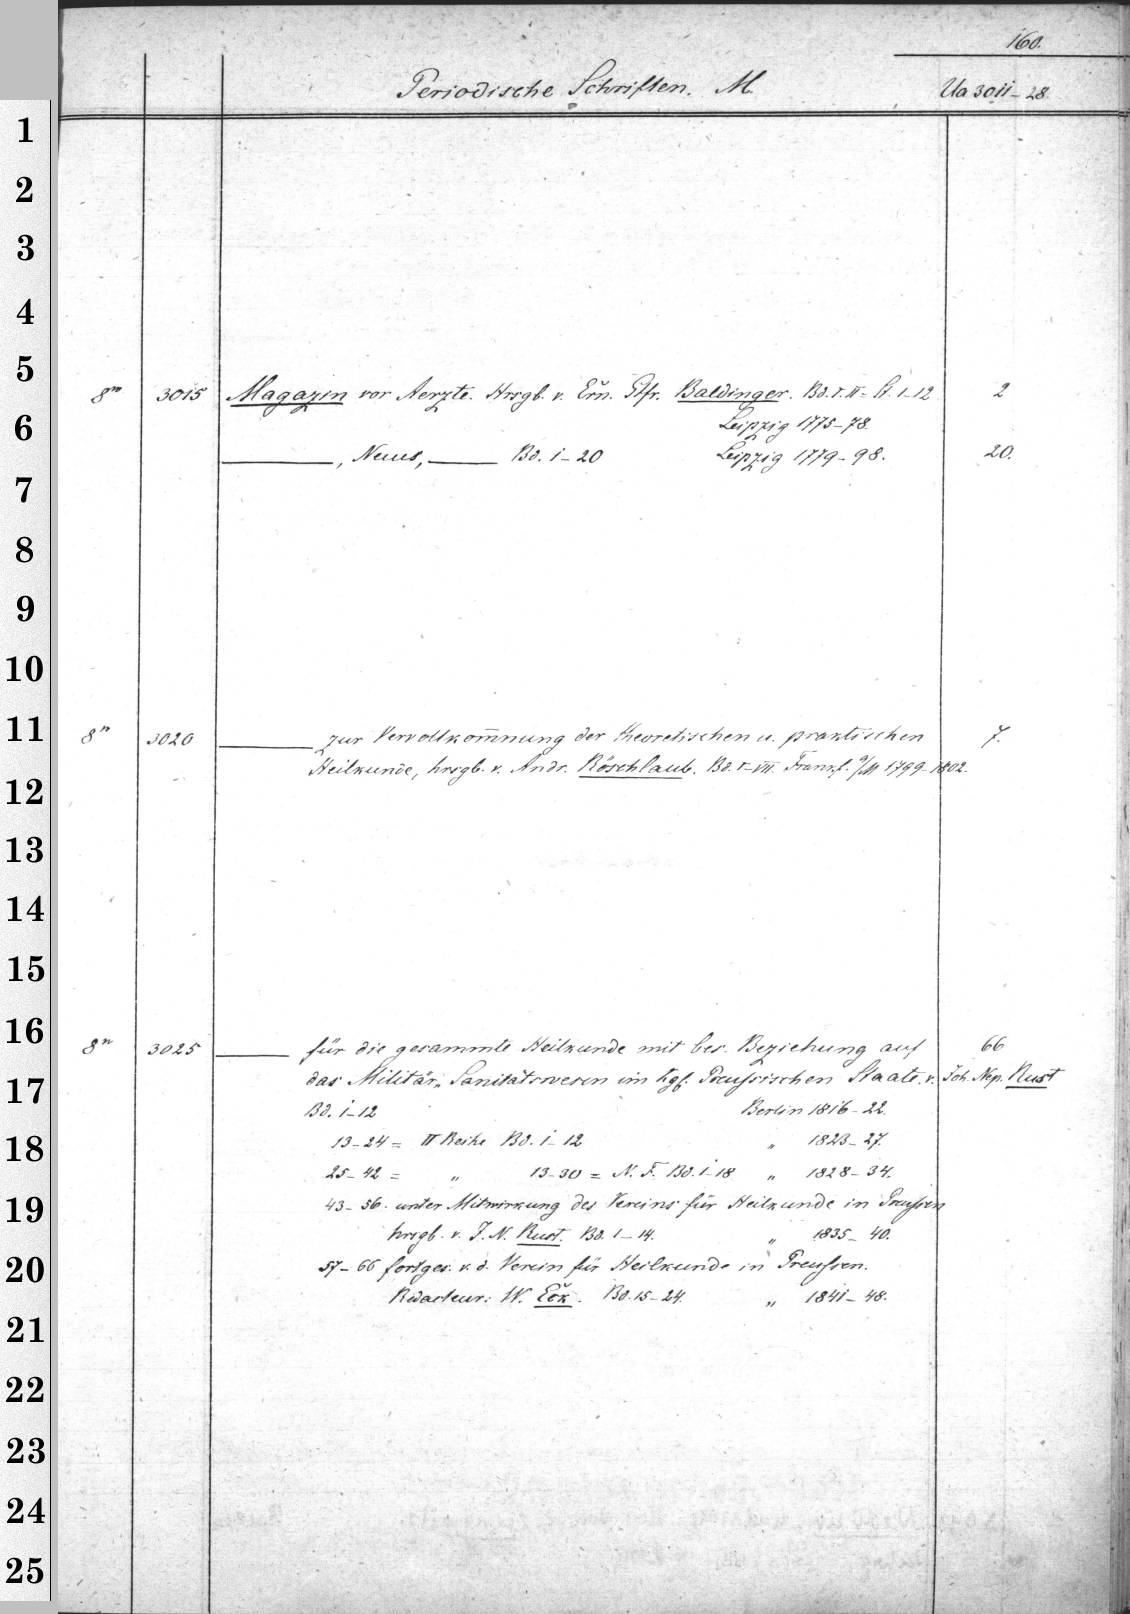 160.
Periodische Schriften. M. Ua 3011-28.
1
2
3
4
5
8° 3015 Magazin vor Aerzte. Hrsgb. v. Ern. Gfr. Baldinger. Bd. I. II = St. 1-12 2
6 Leipzig 1775-78.
——, Neues, —— Bd. 1-20 Leipzig 1779-98. 20.
7
8
9
10
11
8° 3020 —— zur Vervollkom̅nung der theoretischen u. praktischen 7.
Heilkunde, hrsgb. v. Andr. Röschlaub. Bd. I-VII. Frankf. a/M 1799-1802.
12
13
14
15
16
8° 3025 —— für die gesammte Heilkunde mit bes. Beziehung auf 66
17 das Militär-Sanitätswesen im kgl. Preussischen Staate. v. Joh. Nep. Rust
Bd. 1-12 Berlin 1816-22.
18 13-24 = II Reihe Bd. 1-12 „ 1823-27.
25-42 = „ 13-30 = N. F. Bd. 1-18 „ 1828-34.
19 43-56. unter Mitwirkung des Vereins für Heilkunde in Preussen
hrsgb. v. J. N. Rust. Bd. 1-14. „ 1835-40.
20 57-66 fortges. v. d. Verein für Heilkunde in Preussen.
Redacteur: W. Eck. Bd. 15-24. „ 1841-48.
21
22
23
24
25